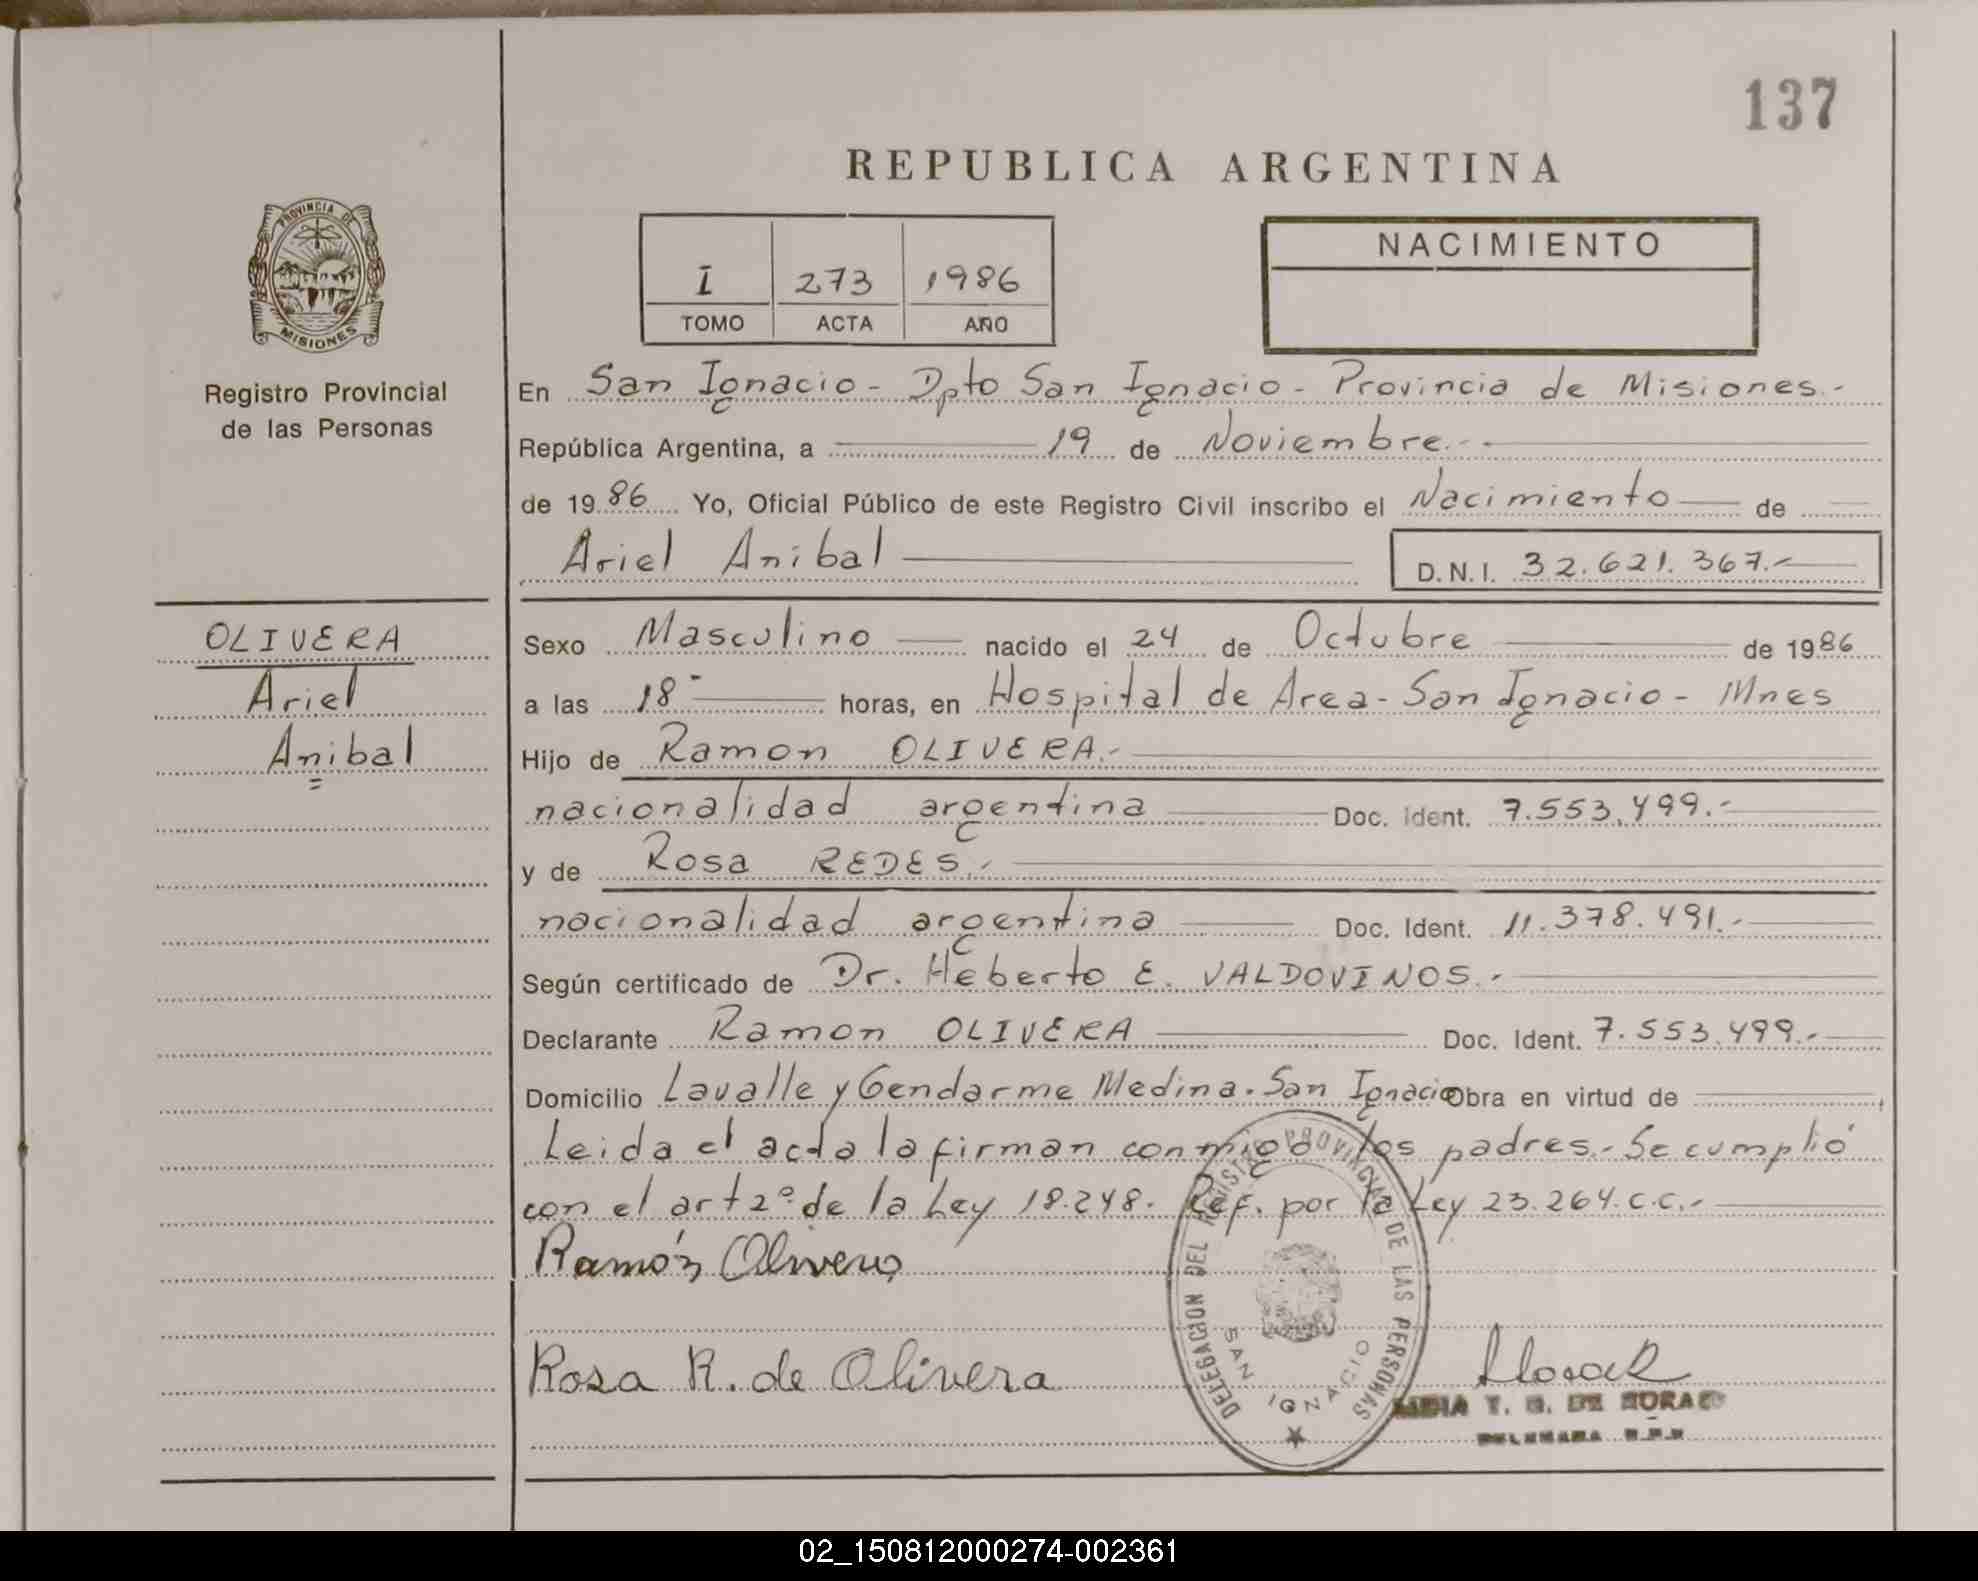 137
REPUBLICA ARGENTINA
PROVINCIA DE
MISIONES
Registro Provincial
de las Personas
I 273 1986
TOMO ACTA AÑO
NACIMIENTO
En San Ignacio - Dpto San Ignacio - Provincia de Misiones.-
República Argentina, a 19 de Noviembre.-
de 1986 Yo, Oficial Público de este Registro Civil inscribo el Nacimiento de
Ariel Anibal D.N.I. 32.621.367.-
OLIVERA
Ariel
Anibal
Sexo Masculino nacido el 24 de Octubre de 1986
a las 18- horas, en Hospital de Area - San Ignacio - Mnes
Hijo de Ramon OLIVERA.-
nacionalidad argentina Doc. Ident. 7.553.499.-
y de Rosa REDES.-
nacionalidad argentina Doc. Ident. 11.378.491.-
Según certificado de Dr. Heberto E. VALDOVINOS.-
Declarante Ramon OLIVERA Doc. Ident. 7.553.499.-
Domicilio Lavalle y Gendarme Medina. San Ignacio Obra en virtud de
Leida el acta la firman conmigo los padres.- Se cumplió
con el art 2º de la Ley 18.248. Ref. por la Ley 23.264.C.C.-
Ramón Olivera
Rosa R. de Olivera
DELEGACION DEL REGISTRO PROVINCIAL DE LAS PERSONAS
SAN IGNACIO
DE MORAES
02_150812000274-002361